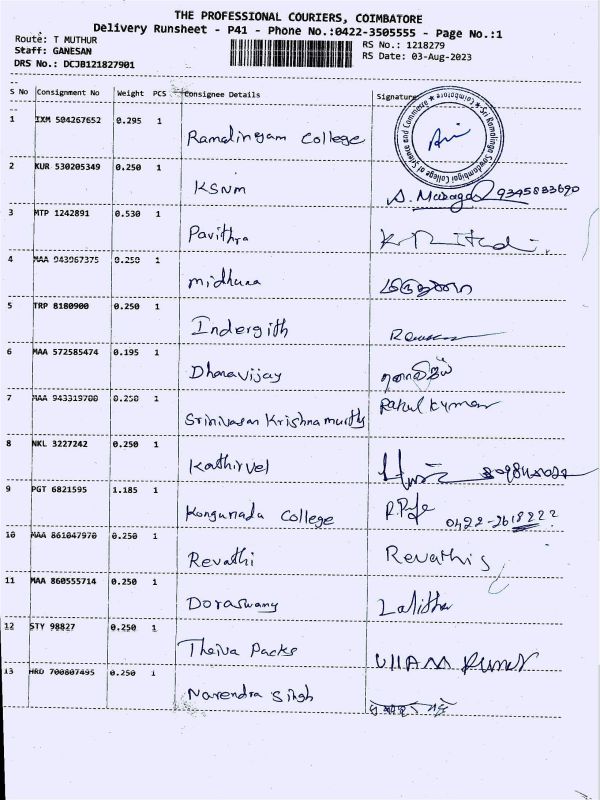 THE PROFESSIONAL COURIERS, COIMBATORE
Delivery Runsheet - P41 - Phone No.:0422-3505555 - Page No.:1
Route: T MUTHUR
RS No.: 1218279
Staff: GANESAN
RS Date: 03-Aug-2023
DRS No.: DCJB121827901
S No Consignment No Weight PCS Consignee Details Signature
1 IXM 504267652 0.295 1 Ramalingam College
Sri Ramalinga Sowdambigai College of Science and Commerce ★ Coimbatore ★
2 KUR 530205349 0.250 1 KSNM
9345833690
3 MTP 1242891 0.530 1 Pavithra
4 MAA 943967375 0.250 1 midhuna
5 TRP 8180900 0.250 1 Indergith
6 MAA 572585474 0.195 1 Dhanavijay
7 MAA 943319700 0.250 1 Srinivasan Krishnamurthy Rahul Kymar
8 NKL 3227242 0.250 1 Kathirvel
9 PGT 6821595 1.185 1 Kongunadu College
0422-2618222
10 MAA 861047970 0.250 1 Revathi Revathi s
11 MAA 860555714 0.250 1 Doraswamy Lalitha
12 STY 98827 0.250 1 Theiva Packs
13 HRD 700807495 0.250 1 Narendra Singh